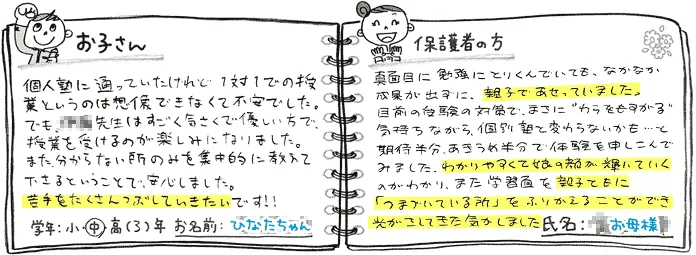 お子さん
個人塾に通っていたけれど1対1での授
業というのは想像できなくて不安でした。
でも、先生はすごく気さくで優しい方で、
授業を受けるのが楽しみになりました。
また、分からない所のみを集中的に教えて
下さるということで、安心しました。
苦手をたくさんつぶしていきたいです!!
学年:小・中・高(3)年 お名前:ひなたちゃん
保護者の方
真面目に勉強にとりくんでいても、なかなか
成果が出ずに、親子であせっていました。
目前の受験の対策で、まさに"わらをもすがる"
気持ちながら、個別塾と変わらないかも…と
期待半分、あきらめ半分で体験を申しこんで
みました。わかりやすくて娘の顔が輝いていく
のがわかり、また学習面を親子ともに
「つまづいている所」をふりかえることができ
光がさしてきた気がしました
氏名:お母様